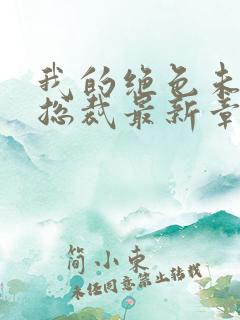 我的绝色未
总裁最新章
简小东
未经同意禁止转载